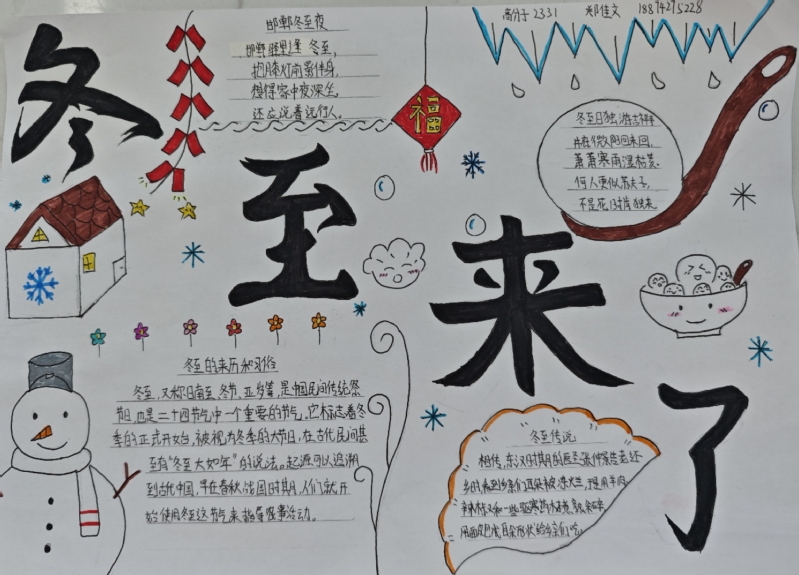 高分子2331 郑佳文 18894295228
冬
至
来
了
邯郸冬至夜
邯郸驿里逢冬至,
抱膝灯前影伴身,
想得家中夜深坐,
还应说着远行人。
福
冬至日独游吉祥寺
井底微阳回未回,
萧萧寒雨湿枯荄。
何人更似苏夫子,
不是花时肯独来
冬至的来历和习俗
冬至,又称日南至、冬节、亚岁等,是中国民间传统祭
节日,也是二十四节气中一个重要的节气,它标志着冬
季的正式开始,被视为冬季的大节日,在古代民间甚
至有“冬至大如年”的说法。起源可以追溯
到古代中国,早在春秋战国时期,人们就开
始使用冬至这节气来指导农事活动。
冬至传说
相传,东汉时期的医圣张仲景告老还
乡的看到乡亲们耳朵被冻烂,于是用羊肉
辣椒和一些驱寒药材
用面皮包成耳朵形状给乡亲们吃。